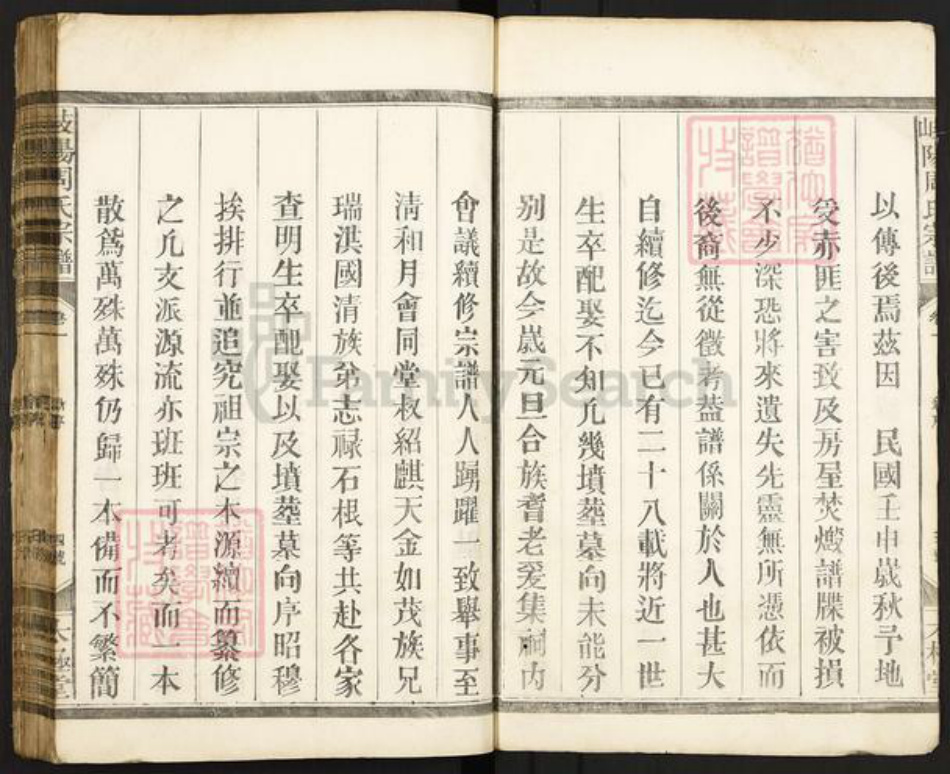 以傳後焉茲因　民國壬申歲秋予地
受赤匪之害致及房屋焚燬譜牒被損
不少深恐將來遺失先靈無所憑依而
後裔無從徵考葢譜係關於人也甚大
自續修迄今已有二十八載將近一世
生卒配娶不知凢幾墳塋墓向未能分
别是故今歲元旦合族耆老爰集祠内
會議續修宗譜人人踴躍一致舉事至
清和月會同堂叔紹麒天金如茂族兄
瑞淇國清族弟志祿石根等共赴各家
查明生卒配娶以及墳塋墓向序昭穆
挨排行並追究祖宗之本源續而纂修
之凢支派源流亦班班可考矣而一本
散爲萬殊萬殊仍歸一本備而不繁簡
岐陽周氏宗譜
卷一
FamilySearch